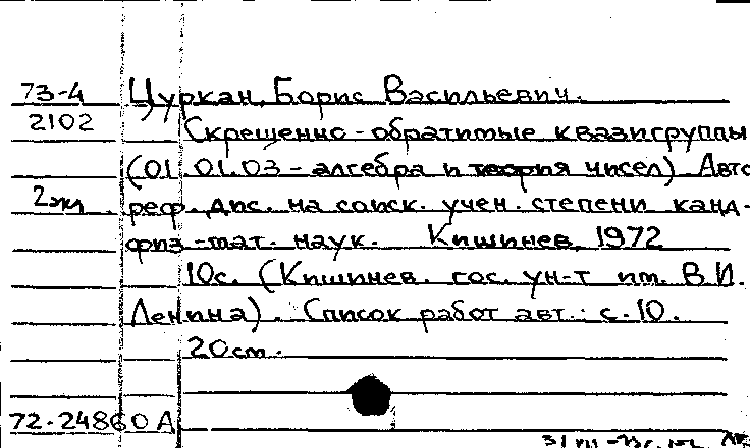 73-4 Цуркан, Борис Васильевич.
2102 Скрещенно-обратимые квазигруппы
(01.01.03 - алгебра и теория чисел) Авто
2эк реф. дис. на соиск. учен. степени канд-
физ-мат. наук. Кишинев, 1972
10с. (Кишинев. гос. ун-т им. В.И.
Ленина). Список работ авт.: с. 10.
20см.
72-24860 А